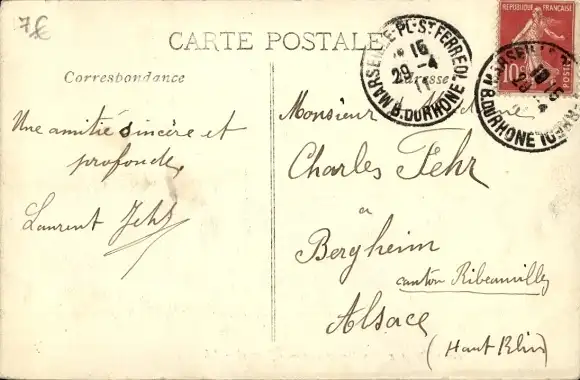 7€
CARTE POSTALE
Correspondance
Adresse
REPUBLIQUE FRANÇAISE
10
MARSEILLE-PL-ST FERREOL
16
29-4
11
B. DU RHONE
MARSEILLE
16
B. DU RHONE
Une amitié sincère et
profonde,
Laurent
Monsieur
Charles Fehr
a
Bergheim
canton Ribeauvillé
Alsace
(Haut Rhin)